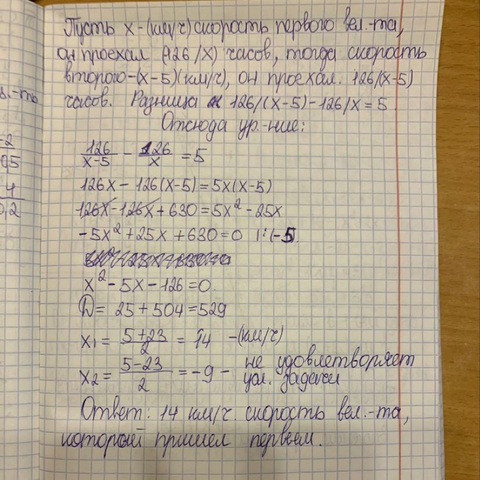 Пусть х-(км/ч) скорость первого вел.-та,
он проехал (126/х) часов, тогда скорость
второго-(х-5)(км/ч), он проехал. 126/(х-5)
часов. Разница 126/(х-5)-126/х=5
Отсюда ур.-ние:
126/(х-5) - 126/х = 5
126х-126(х-5)=5х(х-5)
126х-126х+630=5х²-25х
-5х²+25х+630=0 |:(-5)
х²-5х-126=0
D=25+504=529
х₁=(5+23)/2=14 -(км/ч)
х₂=(5-23)/2=-9- не удовлетворяет
усл. задачи
Ответ: 14 км/ч. скорость вел.-та,
который пришел первым.